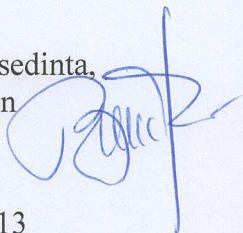 sedinta,
n
13